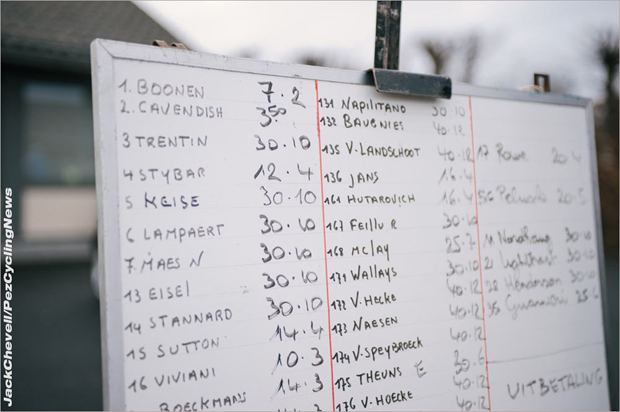 JackChevell/PezCyclingNews
1. BOONEN 7.2
2. CAVENDISH 3.50
3 TRENTIN 30.10
4 STYBAR 12.4
5 KEISE 30.10
6 LAMPAERT 30.10
7 MAES N 30.10
13 EISEL 30.10
14 STANNARD 30.10
15 SUTTON 14.4
16 VIVIANI 10.3
BOECKMANS 14.3
131 NAPILITANO 30.10
132 BAUGNIES 40.12
135 V-LANDSCHOOT 40.12
136 JANS 16.4
161 HUTAROVICH 16.4
167 FEILLU R 30.10
168 MCLAY 25.7
171 WALLAYS 30.10
172 V.HECKE 40.12
173 NAESEN 40.12
174 V-SPEYBROECK 40.12
175 THEUNS E 30.6
176 V.HOECKE 40.12
17 Rowe 20.4
20.5
30.10
30.10
30.10
25.6
UITBETALING